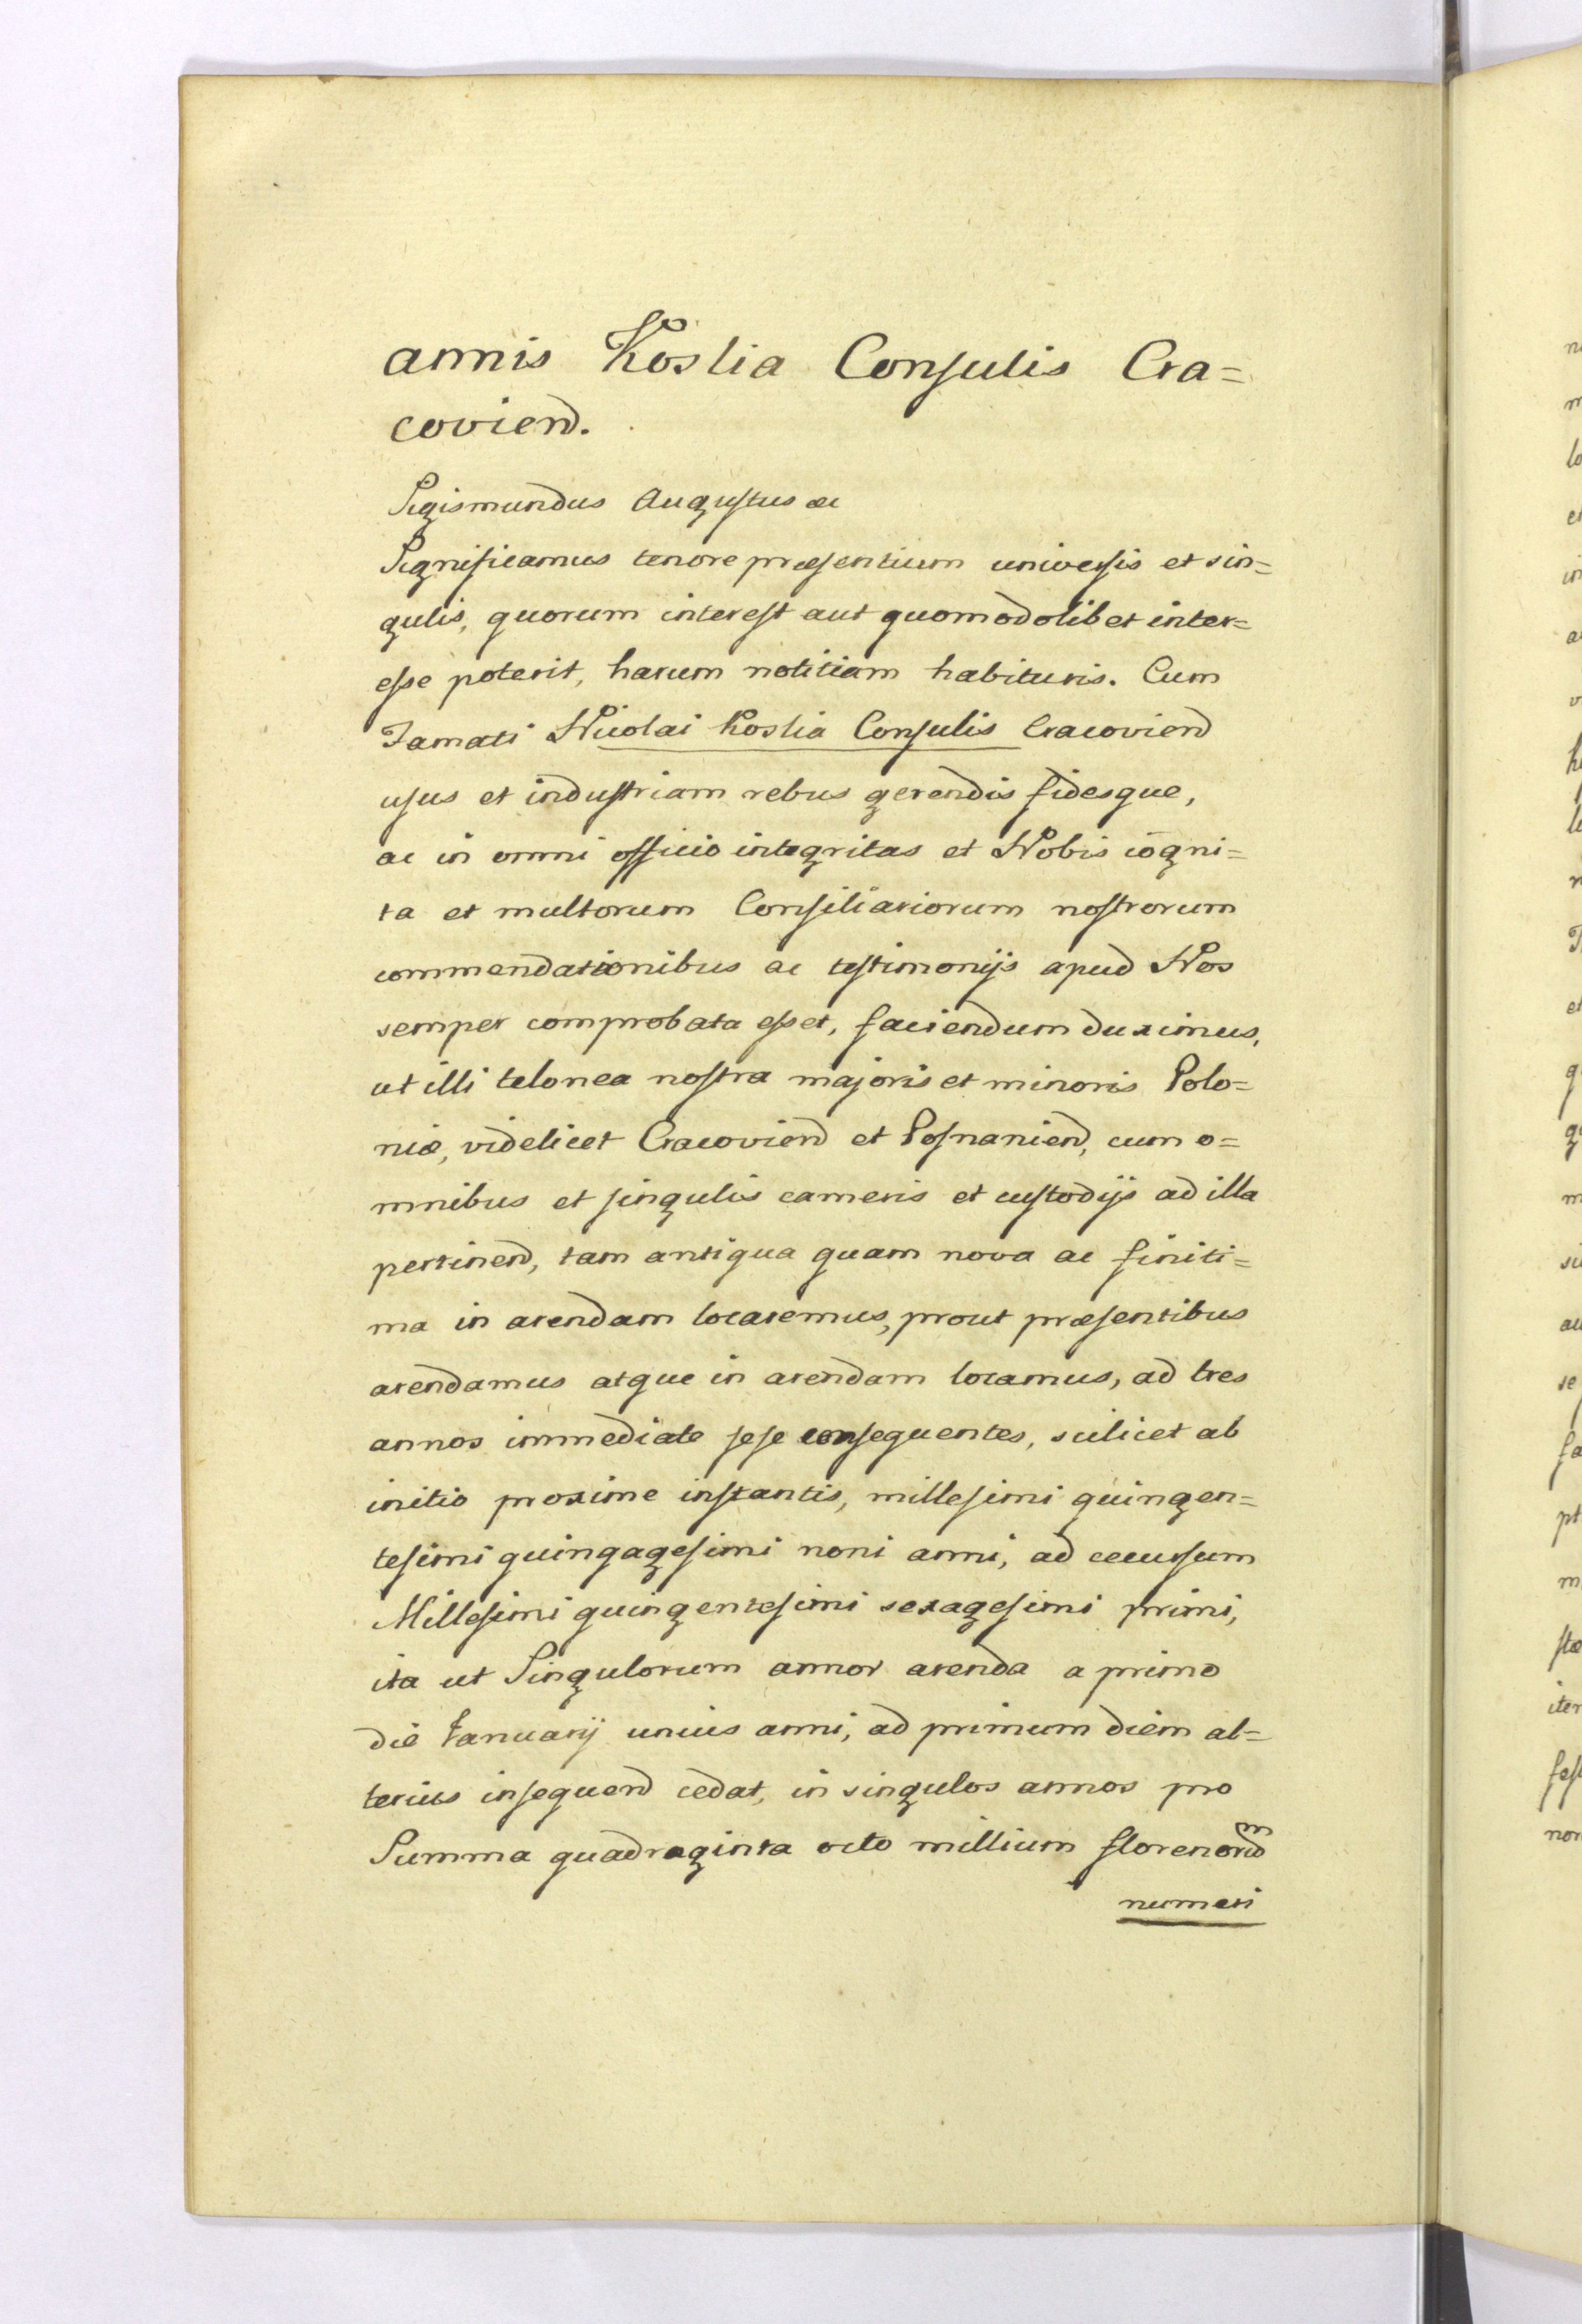 annis Koslia Consulis Cra=
coviend.
Sigismundus Augustus ac
Significamus tenore præsentium universis et sin=
gulis, quorum interest aut quomodolibet inter=
esse poterit, harum notitiam habituris. Cum
Famati Nicolai Koslia Consulis Cracoviend
usus et industriam rebus gerendis fidesque,
ac in omni officio integritas et Nobis cogni=
ta et multorum Consiliariorum nostrorum
commendationibus ac testimonijs apud Nos
semper comprobata esset, faciendum duximus,
ut illi telonea nostra majoris et minoris Polo=
niæ, videlicet Cracoviend et Posnaniend, cum o=
mnibus et singulis cameris et custodijs ad illa
pertinend, tam antiqua quam nova ac finiti=
ma in arendam locaremus, prout præsentibus
arendamus atque in arendam locamus, ad tres
annos immediate sese consequentes, scilicet ab
initio proxime instantis, millesimi quingen=
tesimi quingagesimi noni anni, ad cecursum
Millesimi quingentesimi sexagesimi primi,
ita ut Singulorum annor arenda a primo
die Januarij unius anni, ad primum diem al=
terius insequend cedat, in singulos annos pro
Summa quadraginta octo millium florenorum
numeri